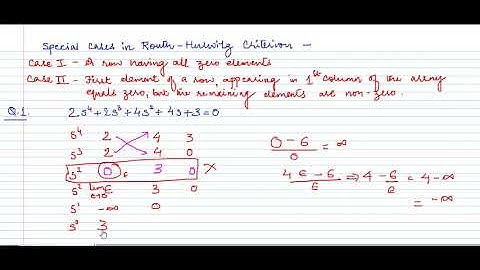 Special Cases in Routh-Hurwitz Criterion -
Case I - A row having all zero elements
Case II - First element of a row, appearing in 1st column of the array
equals zero, but the remaining elements are non-zero.
Q.1. 2s⁴+2s³+4s²+4s+3=0
s⁴ 2 4 3
s³ 2 4 0
s² 0 ε 3 0 ×
s² lim ε→0 ε 3 0
s¹ -∞ 0
s⁰ 3
0-6/0 = ∞
4ε-6/ε ⇒ 4-6/ε = 4-∞
= -∞